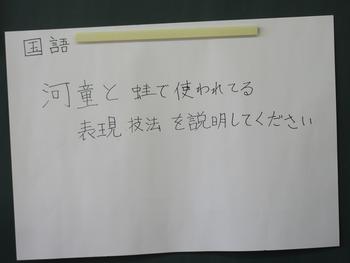 国語
河童と蛙で使われてる
表現技法を説明してください